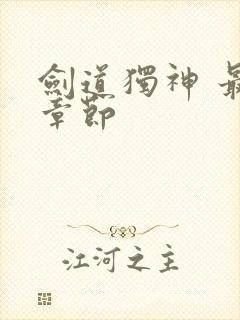 劍道獨神 最
章節
江河之主